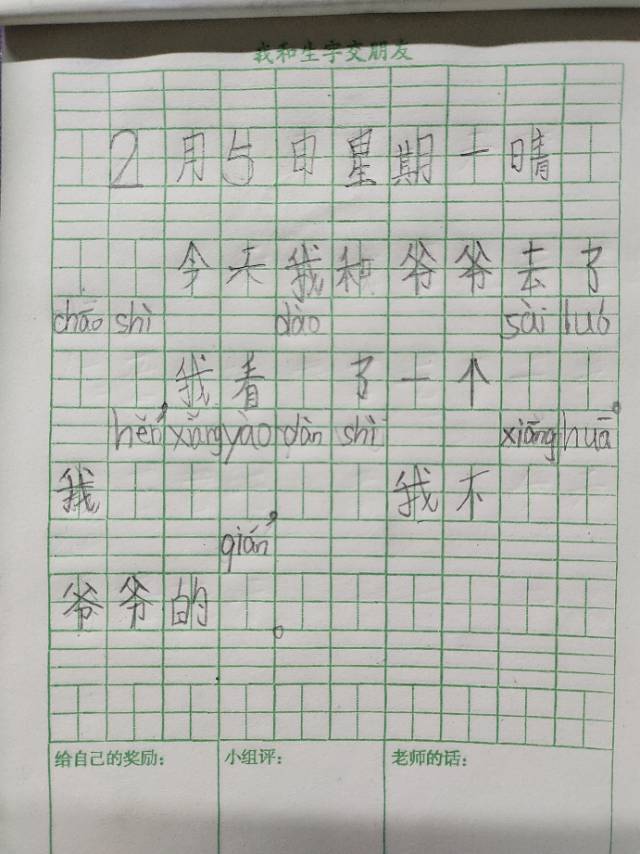 我和生字交朋友
2月5日星期一晴
今天我和爷爷去了
chāo shì dào sài luó
我看了一个。
hěn, xiǎng yào dàn shì xiāng huā
我 我不
qián,
爷爷的。
给自己的奖励: 小组评: 老师的话: